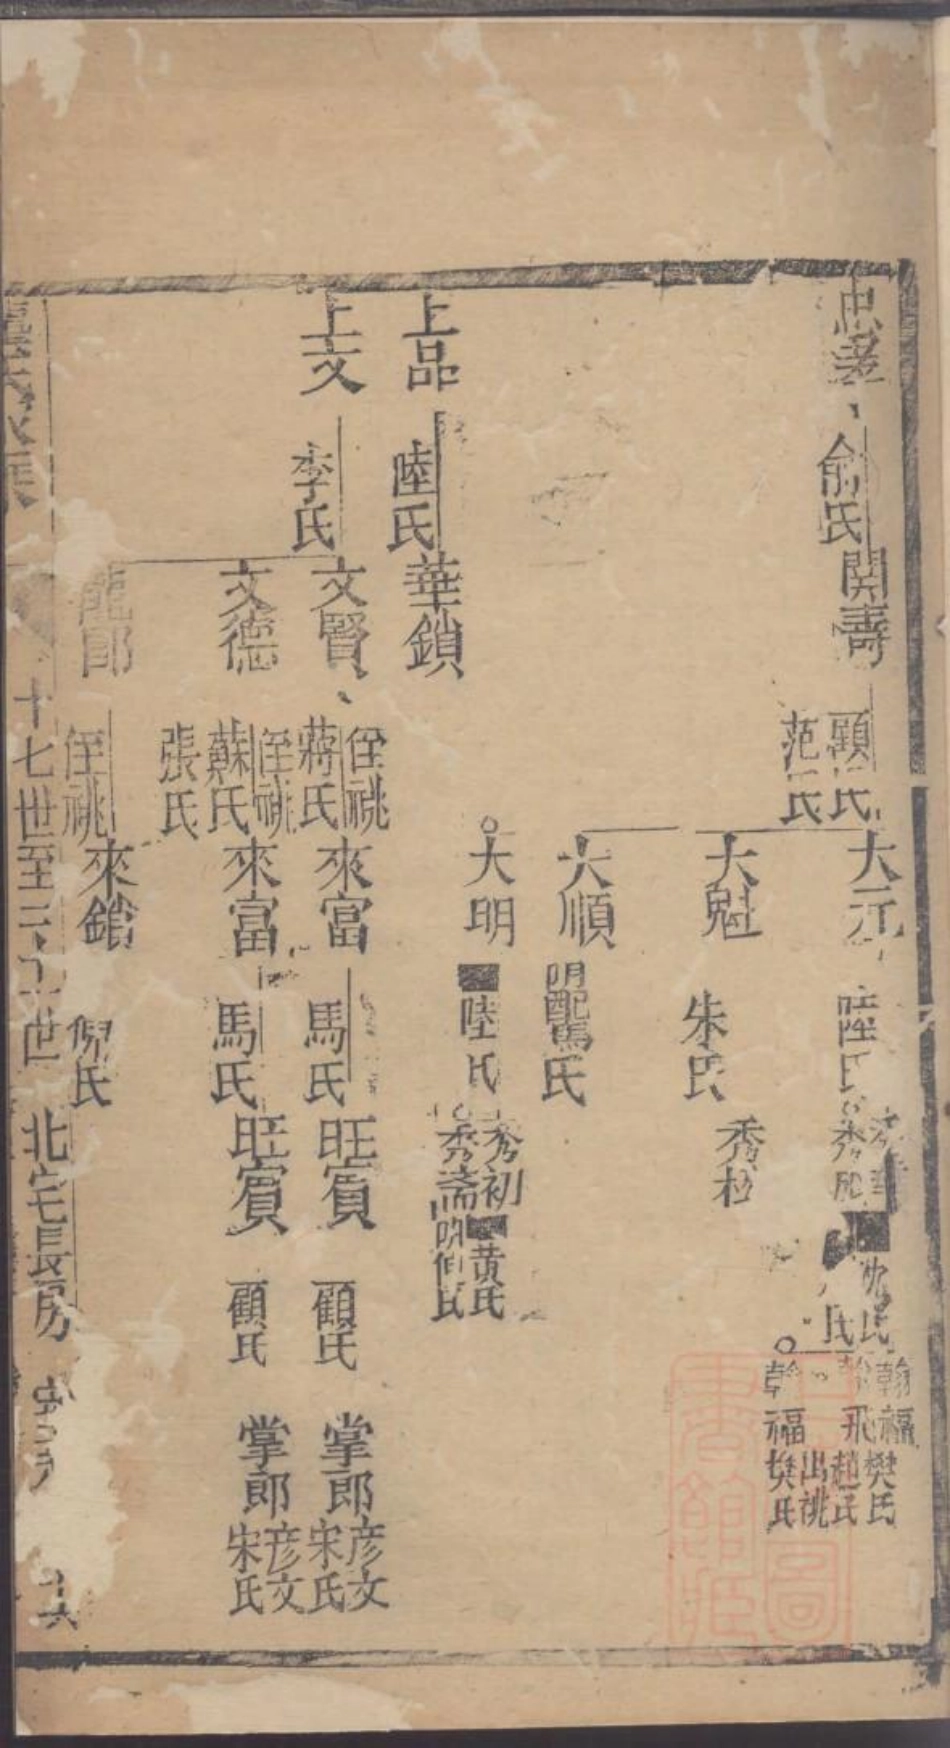 忠孝
俞氏
開壽
顧氏
范氏
大元
陸氏
沈氏
翰福
樊氏
飛
趙氏
出祧
福
樊氏
大魁
朱氏
秀
大順
明配馬氏
大明
陸氏
秀初
黃氏
秀
上品
陸氏
華鎖
上文
李氏
文賢
侄祧
蔣氏
來富
馬氏
旺賓
顧氏
掌郎
彦文
宋氏
文德
侄祧
蘇氏
張氏
來富
馬氏
旺賓
顧氏
掌郎
彦文
宋氏
龍郎
侄祧
來鎖
倪氏
十七世至二十一世 北宅長房
十六